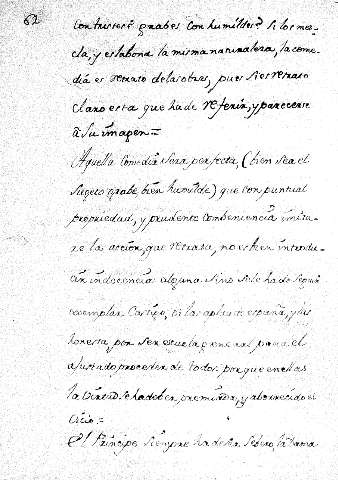 62
con tristes, grabes con humildes, si los mez-
cla, y eslabona la misma naturaleza, la come-
dia es retrato delas obras, pues si es retrato
claro esta que hade referir, y parecerse
â su imagen =
Aquella Comedia sera perfecta, (bien sea el
sugeto grabe, bien humilde) que con puntual
propriedad, y prudente combeniencia imita-
re la accion, que retrata, no esten introdu-
indecencia alguna sino se le hade seguir
exemplar Castigo, España, y es
honesta, por ser escuela general para el
ajustado proceder de todos. porque en ellas
la Virtud se ha de ver premiada, y aborrecido el
Vicio =
El Principe siempre hade ser severo, la Dama